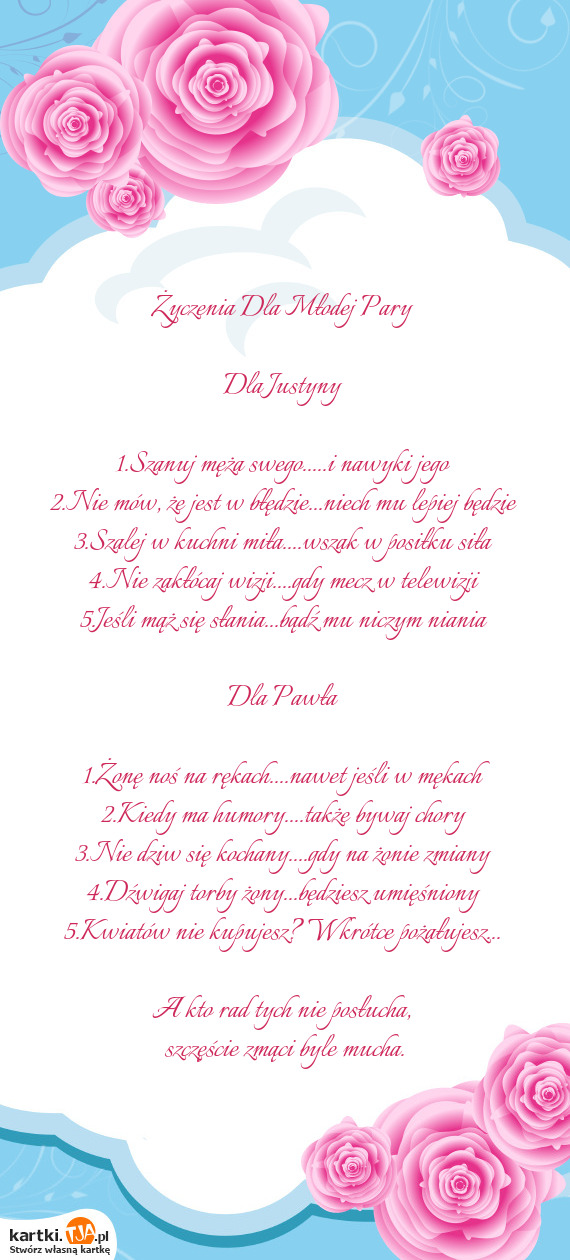 Życzenia Dla Młodej Pary
Dla Justyny
1.Szanuj męża swego.....i nawyki jego
2.Nie mów, że jest w błędzie...niech mu lepiej będzie
3.Szalej w kuchni miła....wszak w posiłku siła
4.Nie zakłócaj wizji....gdy mecz w telewizji
5.Jeśli mąż się słania...bądź mu niczym niania
Dla Pawła
1.Żonę noś na rękach....nawet jeśli w mękach
2.Kiedy ma humory....także bywaj chory
3.Nie dziw się kochany....gdy na żonie zmiany
4.Dźwigaj torby żony...będziesz umięśniony
5.Kwiatów nie kupujesz? Wkrótce pożałujesz...
A kto rad tych nie posłucha,
szczęście zmąci byle mucha.
kartki.TJA.pl
Stwórz własną kartkę